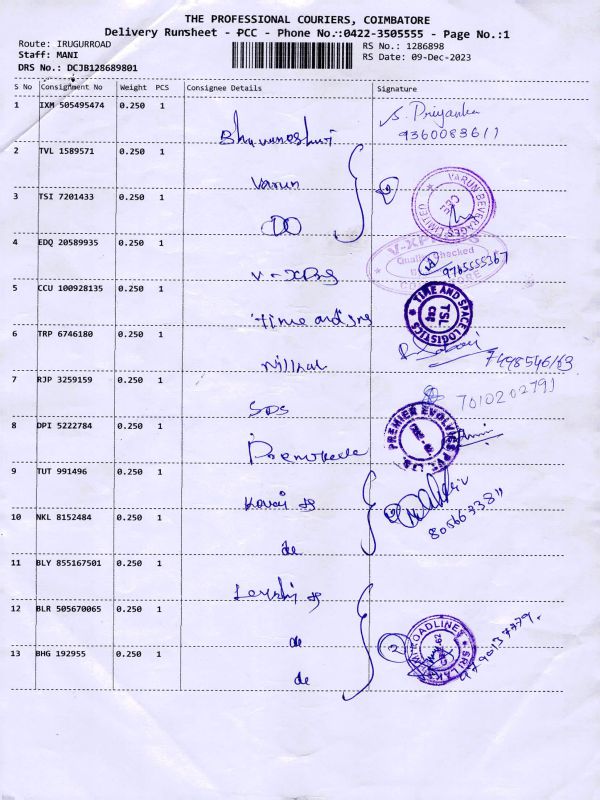 THE PROFESSIONAL COURIERS, COIMBATORE
Delivery Runsheet - PCC - Phone No.:0422-3505555 - Page No.:1
Route: IRUGURROAD
RS No.: 1286898
Staff: MANI
RS Date: 09-Dec-2023
DRS No.: DCJB128689801
S No Consignment No Weight PCS Consignee Details Signature
1 IXM 505495474 0.250 1
S. Priyanka
9360083611
2 TVL 1589571 0.250 1
Varun
VARUN BEVERAGES LIMITED
3 TSI 7201433 0.250 1
DO
4 EDQ 20589935 0.250 1
V-XPRS
Quality Checked
9765555367
5 CCU 100928135 0.250 1
Time and Sps
TIME AND SPACE LOGISTICS
TSL
CBE
6 TRP 6746180 0.250 1
7498546163
7 RJP 3259159 0.250 1
SDS
7010202791
8 DPI 5222784 0.250 1
PREMIER EVOLVICS PVT. LTD.
9 TUT 991496 0.250 1
Kovai
8056633811
10 NKL 8152484 0.250 1
do
11 BLY 855167501 0.250 1
12 BLR 505670065 0.250 1
do
2
SRI LAKSHMI ROADLINES
9790137779.
13 BHG 192955 0.250 1
do